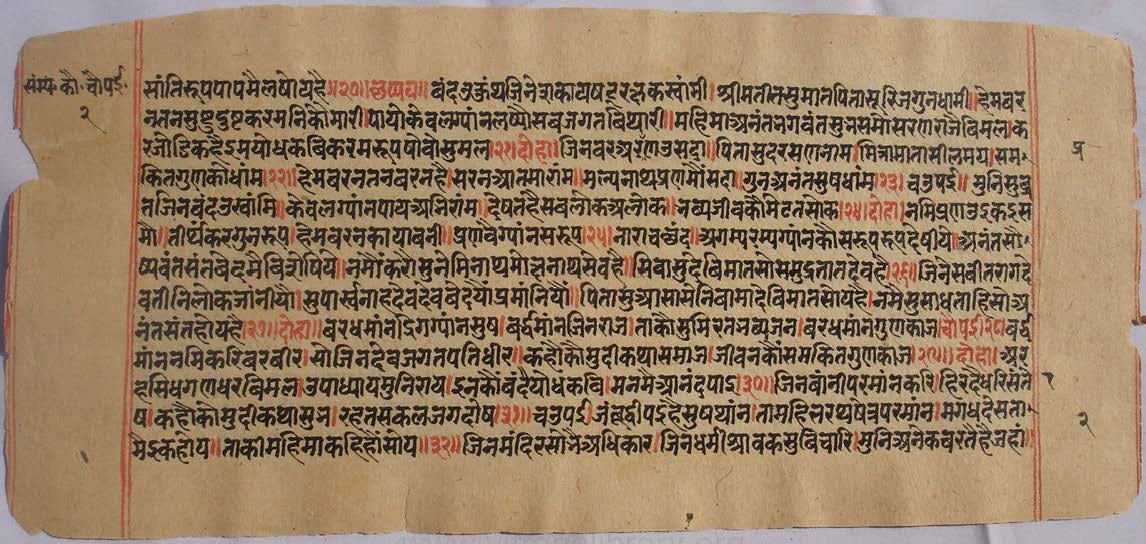 संम्य. कौ. चौपई.
२
सांतिरूपपापमैलषोयहै ॥२०॥ छप्पय ॥ बंदउकुंथजिने काव्यषहरछकस्वांमी । श्रीमतीतसुमातपितासूरिजगुनधामी । हेमवर
नतनसुष्टुदुष्टकरमनिकोंमारी । पायोकेवलग्यांनलष्यौसबजगतबिथारी । महिमाअनंतभगवंतसुनसमोसरणराजैबिमल । क
रजोडिकहैइमयोधकबिकरमरूपषोवोसुमल ।२१। दोहा । जिनबर सदा । पितासुदरसणनाम । मित्रामातासीलमय । सम
कितगुणकोधांम ।२२। हेमबरनतनबरनहै । सरनआनमोराम । मल्यनाथप्रणमौसदा । गुनअनंतसुषधांम ।२३। चउपई । मुनिसुब्र
तजिनबंदउस्वांमि । केवलग्यांनपायअभिराम । देषतहैसबलोकअलोक । भब्यजीवकौमेटतसोक ।२४। दोहा । नमिप्रणउइकइस
मो । तीर्थंकरगुनरूप । हेमबरनकायाबनी । प्रणवैग्यांनसरूप ।२५। नाराचछंद । अगम्यरम्यग्यांनकौसरूपरूपदेषीये । अनंतसौ
ष्यवंतसंतबेदमैबिशेषिये । नमौंकरौसुनेमिनाथमोहनाथसेवहै । सिवासुंदबिमातसोसमुद्रतातदेवहै ।२६। जिनेसबीतरागदे
वतीनिलोकजांनीयौ । सुपार्स्वनाहदेवदेवबेदयौंप्रमांनियौ । पितासुआससेनिबामादेबिमातसोयहै । नमैसुसाधताहिसोअ
नंतसंतहोयहै ।२७। दोहा । बरधमांन ग्यांनसुष । बर्द्धमांनजिनराज । ताकौसुमिरनभब्यजन । बरधमांनगुणकाज । चौपई ।२८। बर्द्ध
मांननमिकरिबरबीर । सोजिनदेवजगतपतिधीर । कहौकौमुदीकथासमाज । जीवनकौंसमकितगुणकाज ।२९। दोहा । अर
हसिधगणधरबिमल । उपाध्यायमुनिराय । इनकौंबंदैयोधकबि । मनमैआनंदपाइ ।३०। जिनबांनीपरमांनकरि । हिरदैधरिसंते
ष । कहौकौमुदीकथासुन । रहतसकलजगदोष ।३१। चउपई । जंबूद्वीपईहैसुषथांन । तामहिभरथषेत्रपरमांन । मगधदेसता
मैइकहोय । ताकीमहिमाकहिहौसोय ।३२। जिनमंदिरसोभैअधिकार । जिनधर्मीश्रावकसुबिचारि । मुनिअनेकबरतैहैजहां ।
२